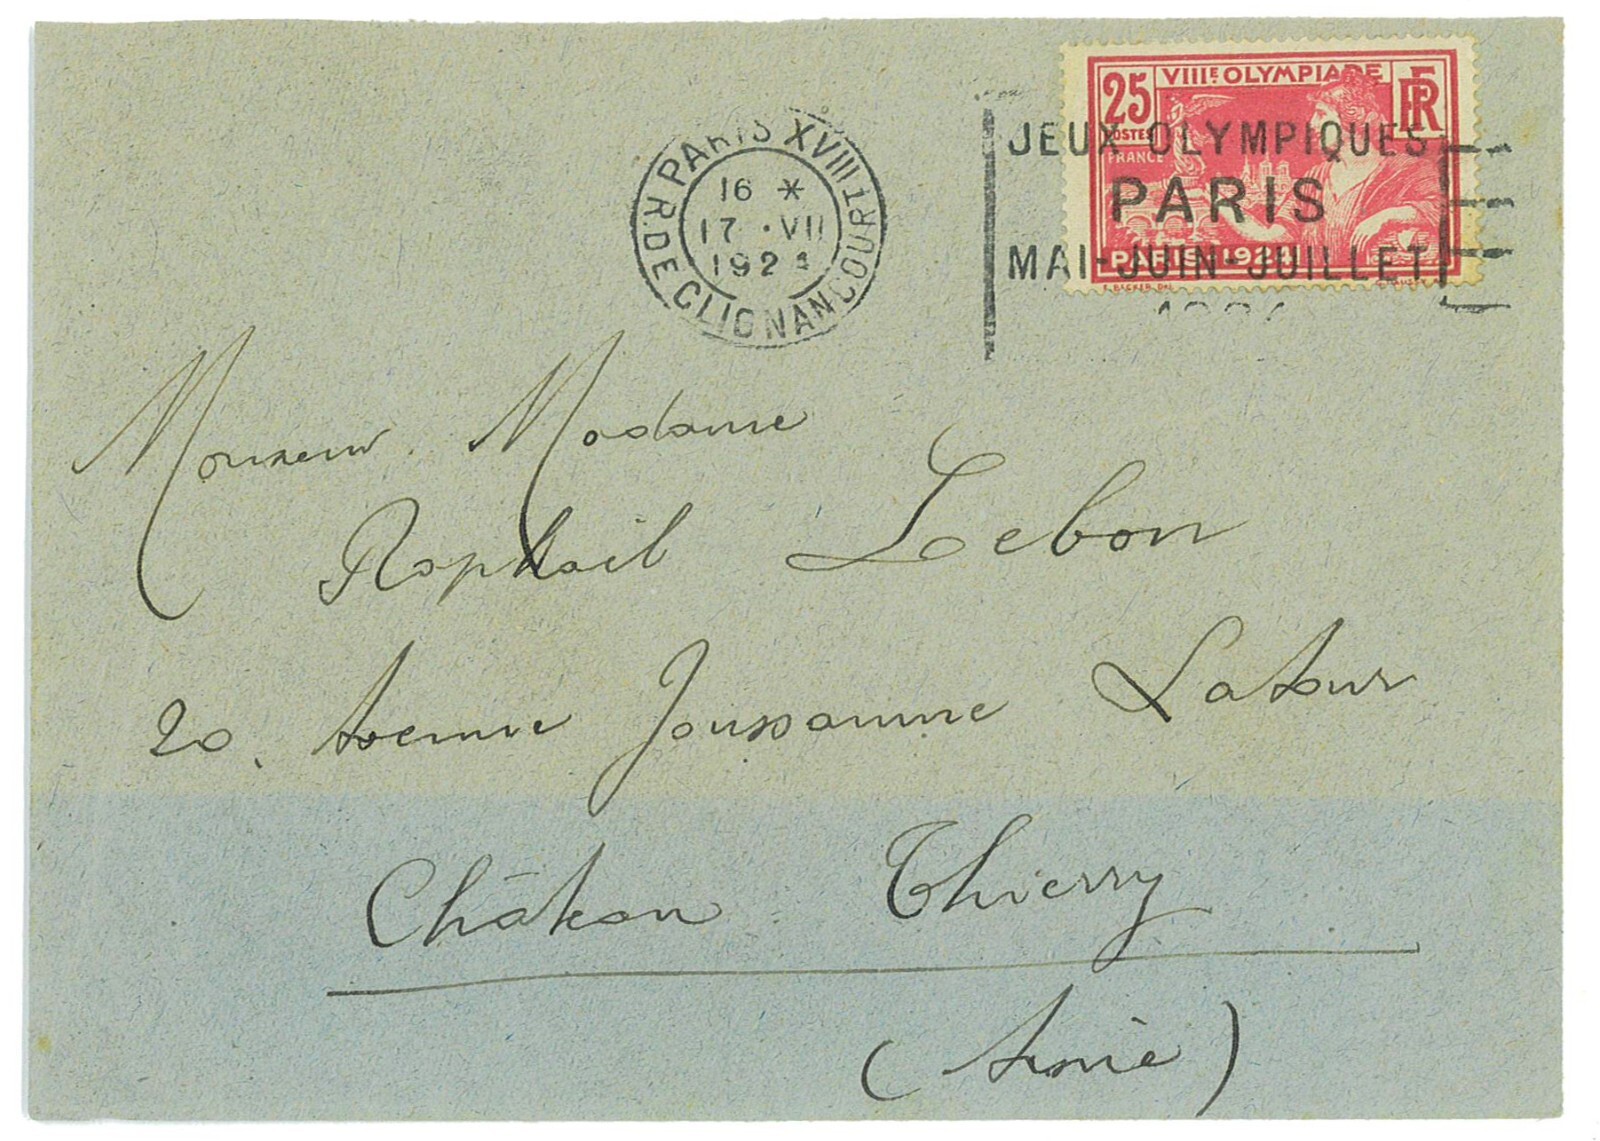 25 VIIIE. OLYMPIADE RF
POSTES
FRANCE
PARIS 1924
JEUX OLYMPIQUES
PARIS
MAI-JUIN-JUILLET
1924
PARIS XVIII
R. DE CLIGNANCOURT
16 *
17 · VII
1924
Monsieur Madame
Raphaël Lebon
20, Avenue Joussaume Latour
Château Thierry
(Aisne)